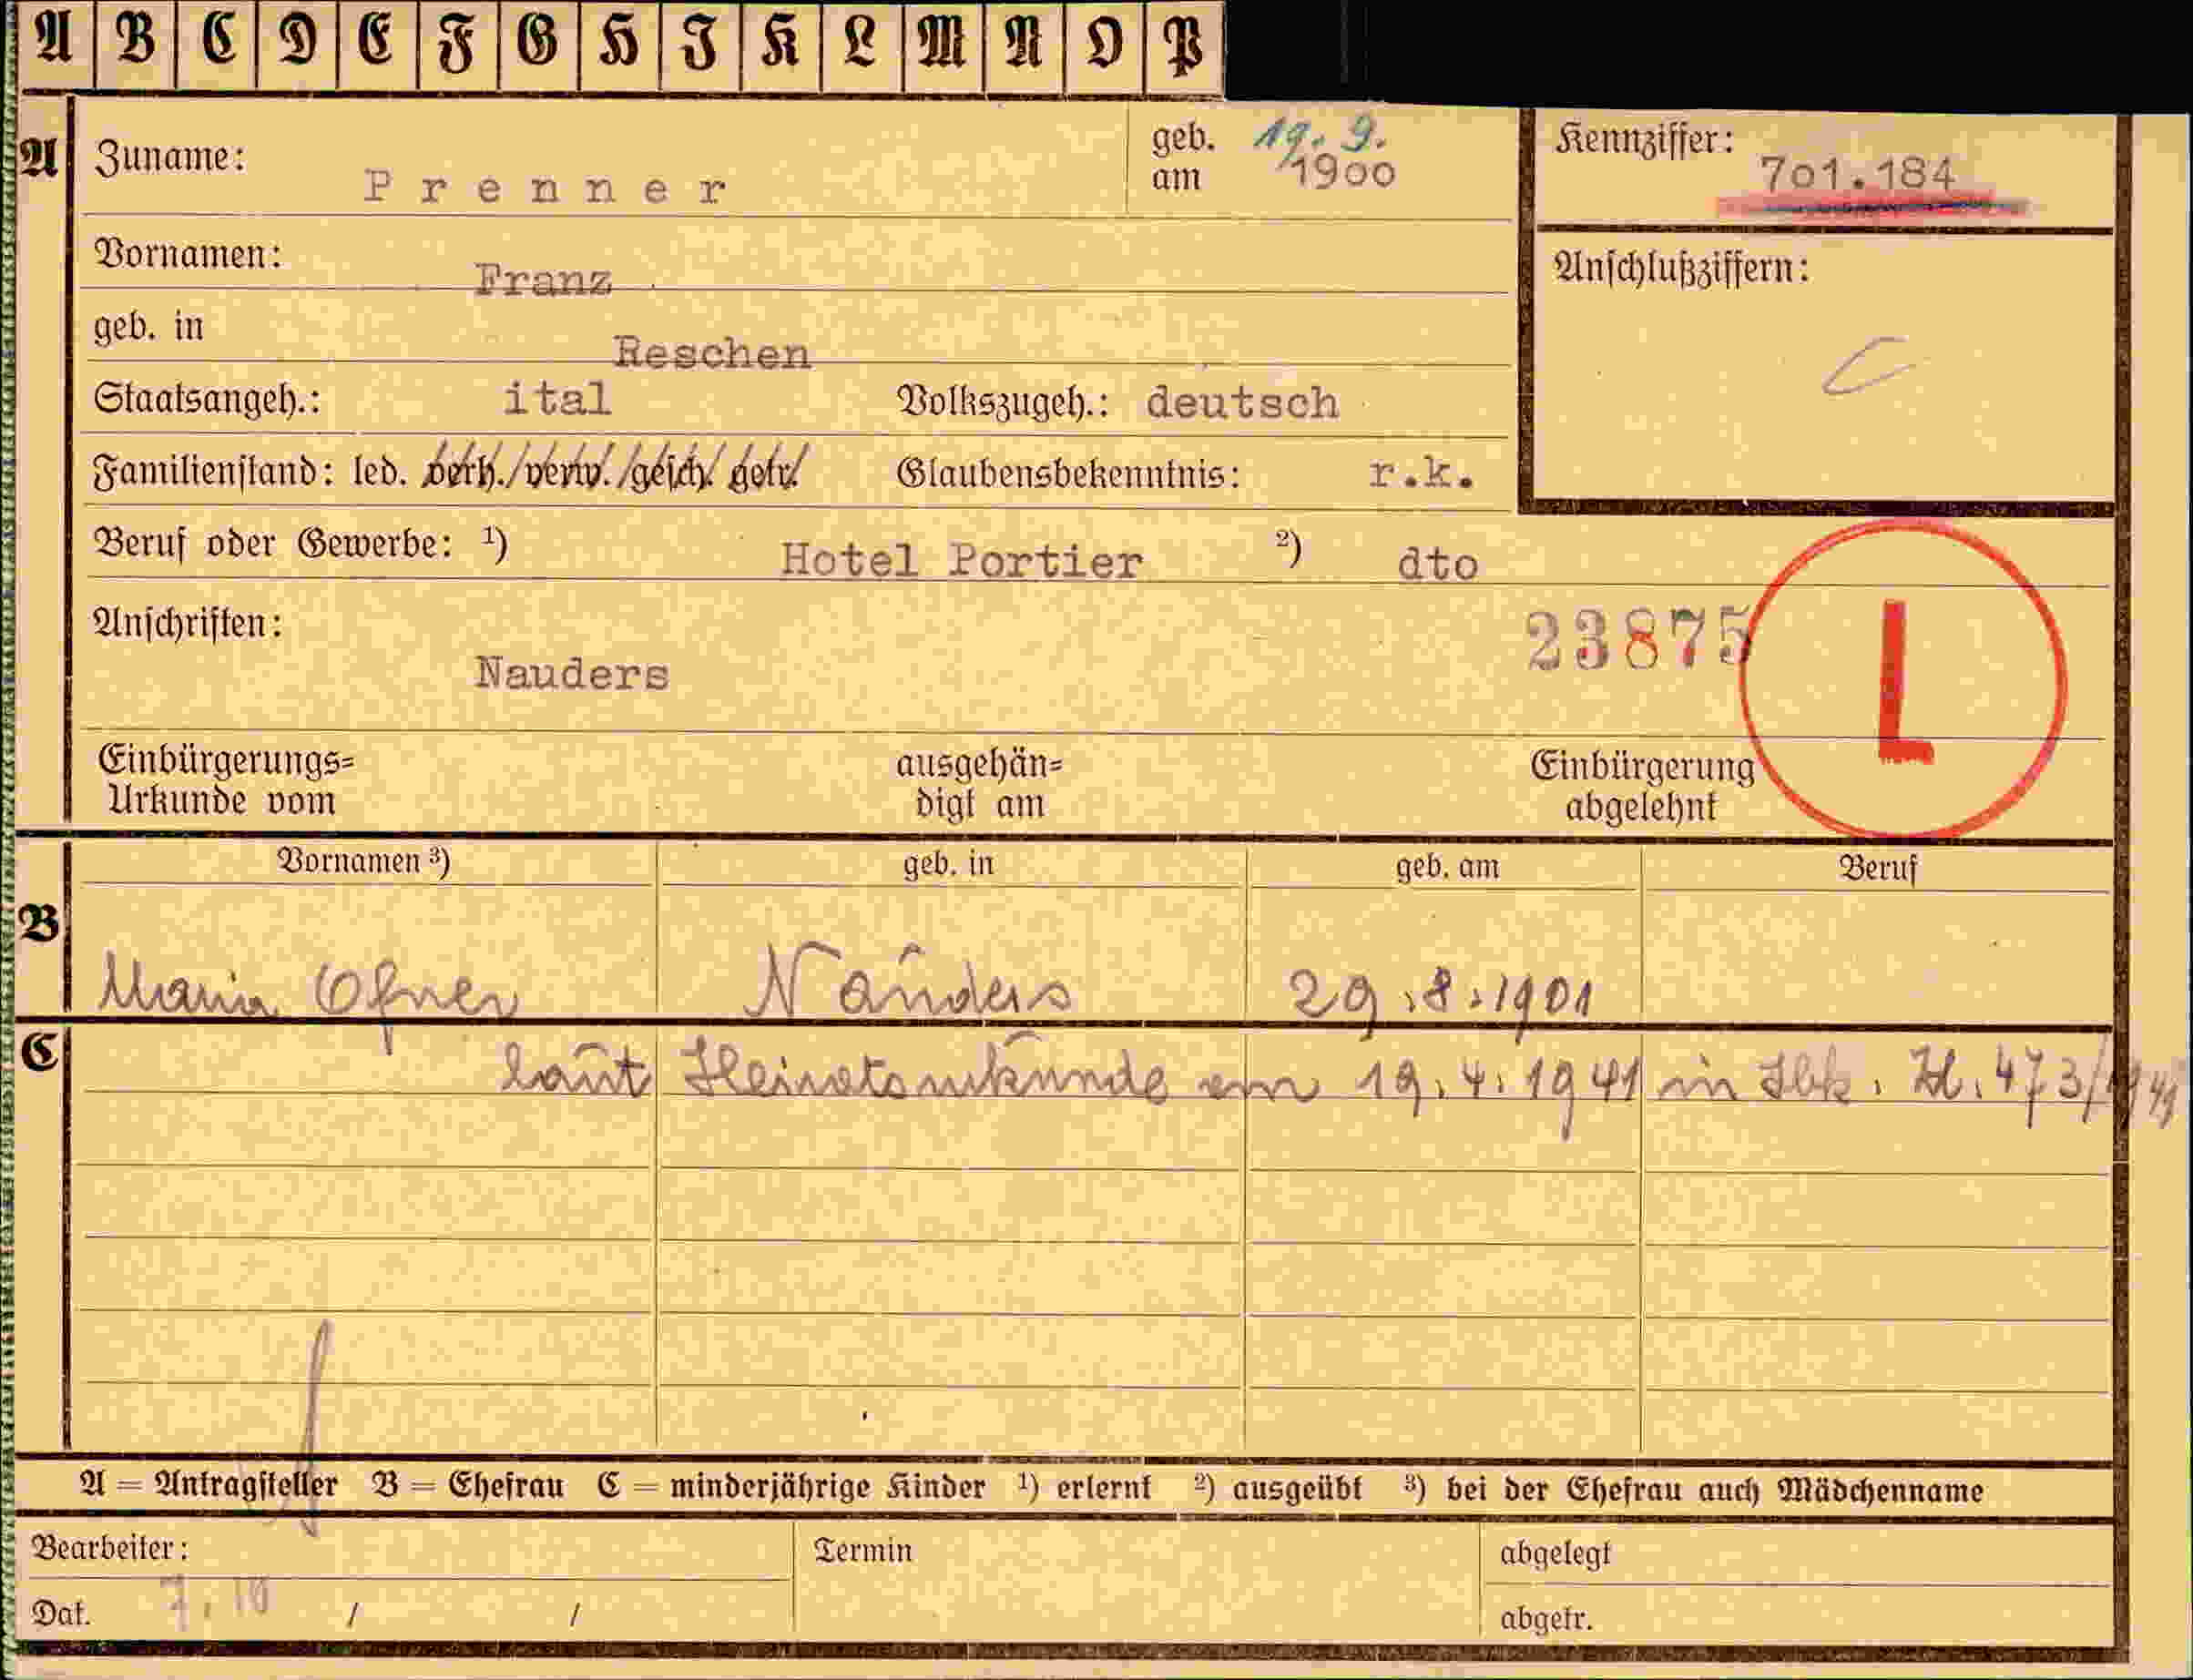 A B C D E F G H I K L M N O P
A Zuname: Prenner geb. am 19. 9. 1900 Kennziffer: 701.184
Vornamen: Franz Anschlußziffern:
geb. in Reschen
Staatsangeh.: ital Volkszugeh.: deutsch
Familienstand: led. verh./verw./gesch./getr. Glaubensbekenntnis: r.k.
Beruf oder Gewerbe: ¹) Hotel Portier ²) dto
Anschriften: Nauders 23875 L
Einbürgerungs= ausgehän= Einbürgerung
Urkunde vom digt am abgelehnt
Vornamen ³) geb. in geb. am Beruf
B Maria Ofner Nauders 29.8.1901
C laut Heiratsurkunde am 19.4.1941 in Ibk. Zl. 473/1941
A = Antragsteller B = Ehefrau C = minderjährige Kinder ¹) erlernt ²) ausgeübt ³) bei der Ehefrau auch Mädchenname
Bearbeiter: Termin abgelegt
Dat. 7.10 / / abgetr.